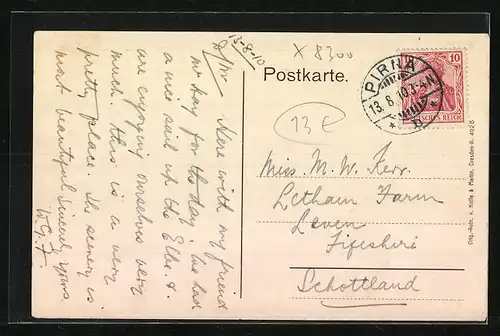 13-8-10
X 8300
Postkarte.
13 €
PIRNA
13.8.10.3-4N
10
DEUTSCHES REICH
Here with my friend
Mr Kay for the day, he had
a nice sail up the Elbe. &
are enjoying ourselves very
much. this is a very
pretty place. The scenery is
most beautiful. Sincerely yours,
W.G.J.
Miss. M. W. Kerr.
Letham Farm
Leven
Fifeshire
Schottland
Orig.-Aufn. v. Nolte & Martin, Dresden-A. 4028